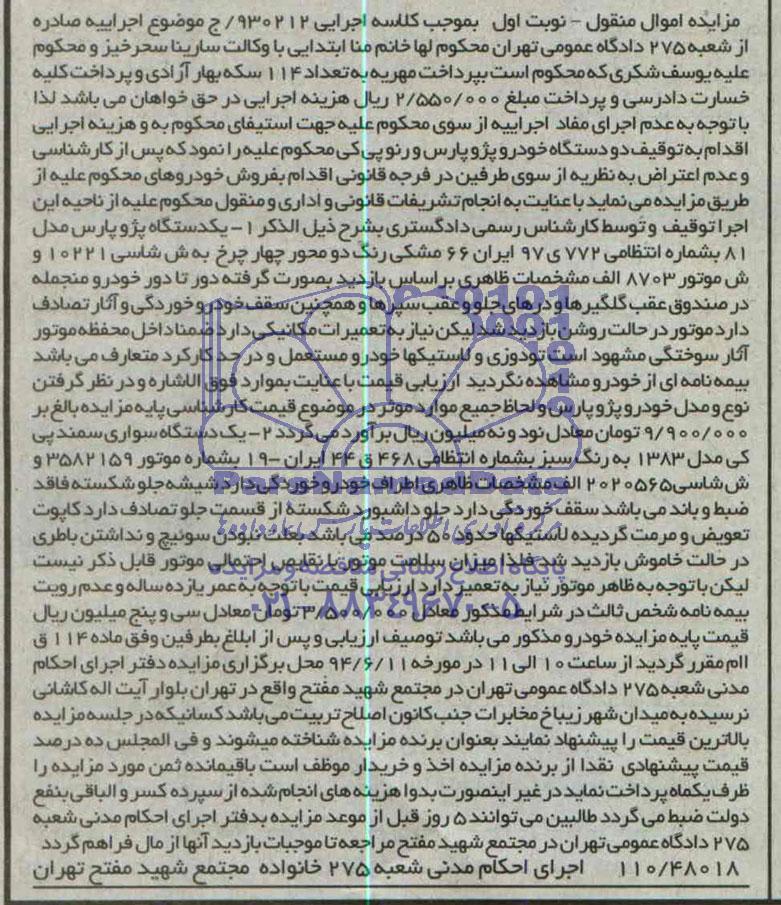 مزایده اموال منقول - نوبت اول بموجب کلاسه اجرایی ۹۳۰۲۱۲/ ج موضوع اجراییه صادره
از شعبه ۲۷۵ دادگاه عمومی تهران محکوم لها خانم منا ابتدایی با وکالت سارینا سحرخیز و محکوم
علیه یوسف شکری که محکوم است بپرداخت مهریه به تعداد ۱۱۴ سکه بهار آزادی و پرداخت کلیه
خسارت دادرسی و پرداخت مبلغ ۲/۵۵۰/۰۰۰ ریال هزینه اجرایی در حق خواهان می باشد لذا
با توجه به عدم اجرای مفاد اجراییه از سوی محکوم علیه جهت استیفای محکوم به و هزینه اجرایی
اقدام به توقیف دو دستگاه خودرو پژو پارس و رنو پی کی محکوم علیه را نمود که پس از کارشناسی
و عدم اعتراض به نظریه از سوی طرفین در فرجه قانونی اقدام بفروش خودروهای محکوم علیه از
طریق مزایده می نماید با عنایت به انجام تشریفات قانونی و اداری و منقول محکوم علیه از ناحیه این
اجرا توقیف و توسط کارشناس رسمی دادگستری بشرح ذیل الذکر ۱- یکدستگاه پژو پارس مدل
۸۱ بشماره انتظامی ۷۷۲ ی ۹۷ ایران ۶۶ مشکی رنگ دو محور چهار چرخ به ش شاسی ۱۰۲۲۱ و
ش موتور ۸۷۰۳ الف مشخصات ظاهری بر اساس بازدید بصورت گرفته دور تا دور خودرو منجمله
در صندوق عقب گلگیرها و درهای جلو و عقب سپرها و همچنین سقف خودرو خوردگی و آثار تصادف
دارد موتور در حالت روشن بازدید شد لیکن نیاز به تعمیرات مکانیکی دارد ضمنا داخل محفظه موتور
آثار سوختگی مشهود است تودوزی و لاستیکها خودرو مستعمل و در حد کارکرد متعارف می باشد
بیمه نامه ای از خودرو مشاهده نگردید ارزیابی قیمت با عنایت بموارد فوق الاشاره و در نظر گرفتن
نوع و مدل خودرو پژو پارس و لحاظ جمیع موارد موثر در موضوع قیمت کارشناسی پایه مزایده بالغ بر
۹/۹۰۰/۰۰۰ تومان معادل نود و نه میلیون ریال برآورد می گردد ۲- یک دستگاه سواری سمند پی
کی مدل ۱۳۸۳ به رنگ سبز بشماره انتظامی ۴۶۸ ق ۴۴ ایران -۱۹ بشماره موتور ۳۵۸۲۱۵۹ و
ش شاسی ۲۰۲۰۵۶۵ الف مشخصات ظاهری اطراف خودرو خوردگی دارد شیشه جلو شکسته فاقد
ضبط و باند می باشد سقف خوردگی دارد جلو داشبورد شکستهٔ از قسمت جلو تصادف دارد کاپوت
تعویض و مرمت گردیده لاستیکها حدود ۵۰ درصد می باشد بعلت نبودن سوئیچ و نداشتن باطری
در حالت خاموش بازدید شد فلذا میزان سلامت موتور یا نقایص احتمالی موتور قابل ذکر نیست
لیکن با توجه به ظاهر موتور نیاز به تعمیر دارد ارزیابی قیمت با توجه به عمر یازده ساله و عدم رویت
بیمه نامه شخص ثالث در شرایط مذکور معادل ۳/۵۰۰/۰۰۰ تومان معادل سی و پنج میلیون ریال
قیمت پایه مزایده خودرو مذکور می باشد توصیف ارزیابی و پس از ابلاغ بطرفین وفق ماده ۱۱۴ ق
اام مقرر گردید از ساعت ۱۰ الی ۱۱ در مورخه ۹۴/۶/۱۱ محل برگزاری مزایده دفتر اجرای احکام
مدنی شعبه ۲۷۵ دادگاه عمومی تهران در مجتمع شهید مفتح واقع در تهران بلوار آیت اله کاشانی
نرسیده به میدان شهر زیباخ مخابرات جنب کانون اصلاح تربیت می باشد کسانیکه در جلسه مزایده
بالاترین قیمت را پیشنهاد نمایند بعنوان برنده مزایده شناخته میشوند و فی المجلس ده درصد
قیمت پیشنهادی نقدا از برنده مزایده اخذ و خریدار موظف است باقیمانده ثمن مورد مزایده را
ظرف یکماه پرداخت نماید در غیر اینصورت بدوا هزینه های انجام شده از سپرده کسر و الباقی بنفع
دولت ضبط می گردد طالبین می توانند ۵ روز قبل از موعد مزایده بدفتر اجرای احکام مدنی شعبه
۲۷۵ دادگاه عمومی تهران در مجتمع شهید مفتح مراجعه تا موجبات بازدید آنها از مال فراهم گردد
۱۱۰/۴۸۰۱۸ اجرای احکام مدنی شعبه ۲۷۵ خانواده مجتمع شهید مفتح تهران
ParsNamadData
پایگاه اطلاع رسانی مناقصه و مزایده
۰۲۱-۸۸۳۴۹۶۷۰-۵